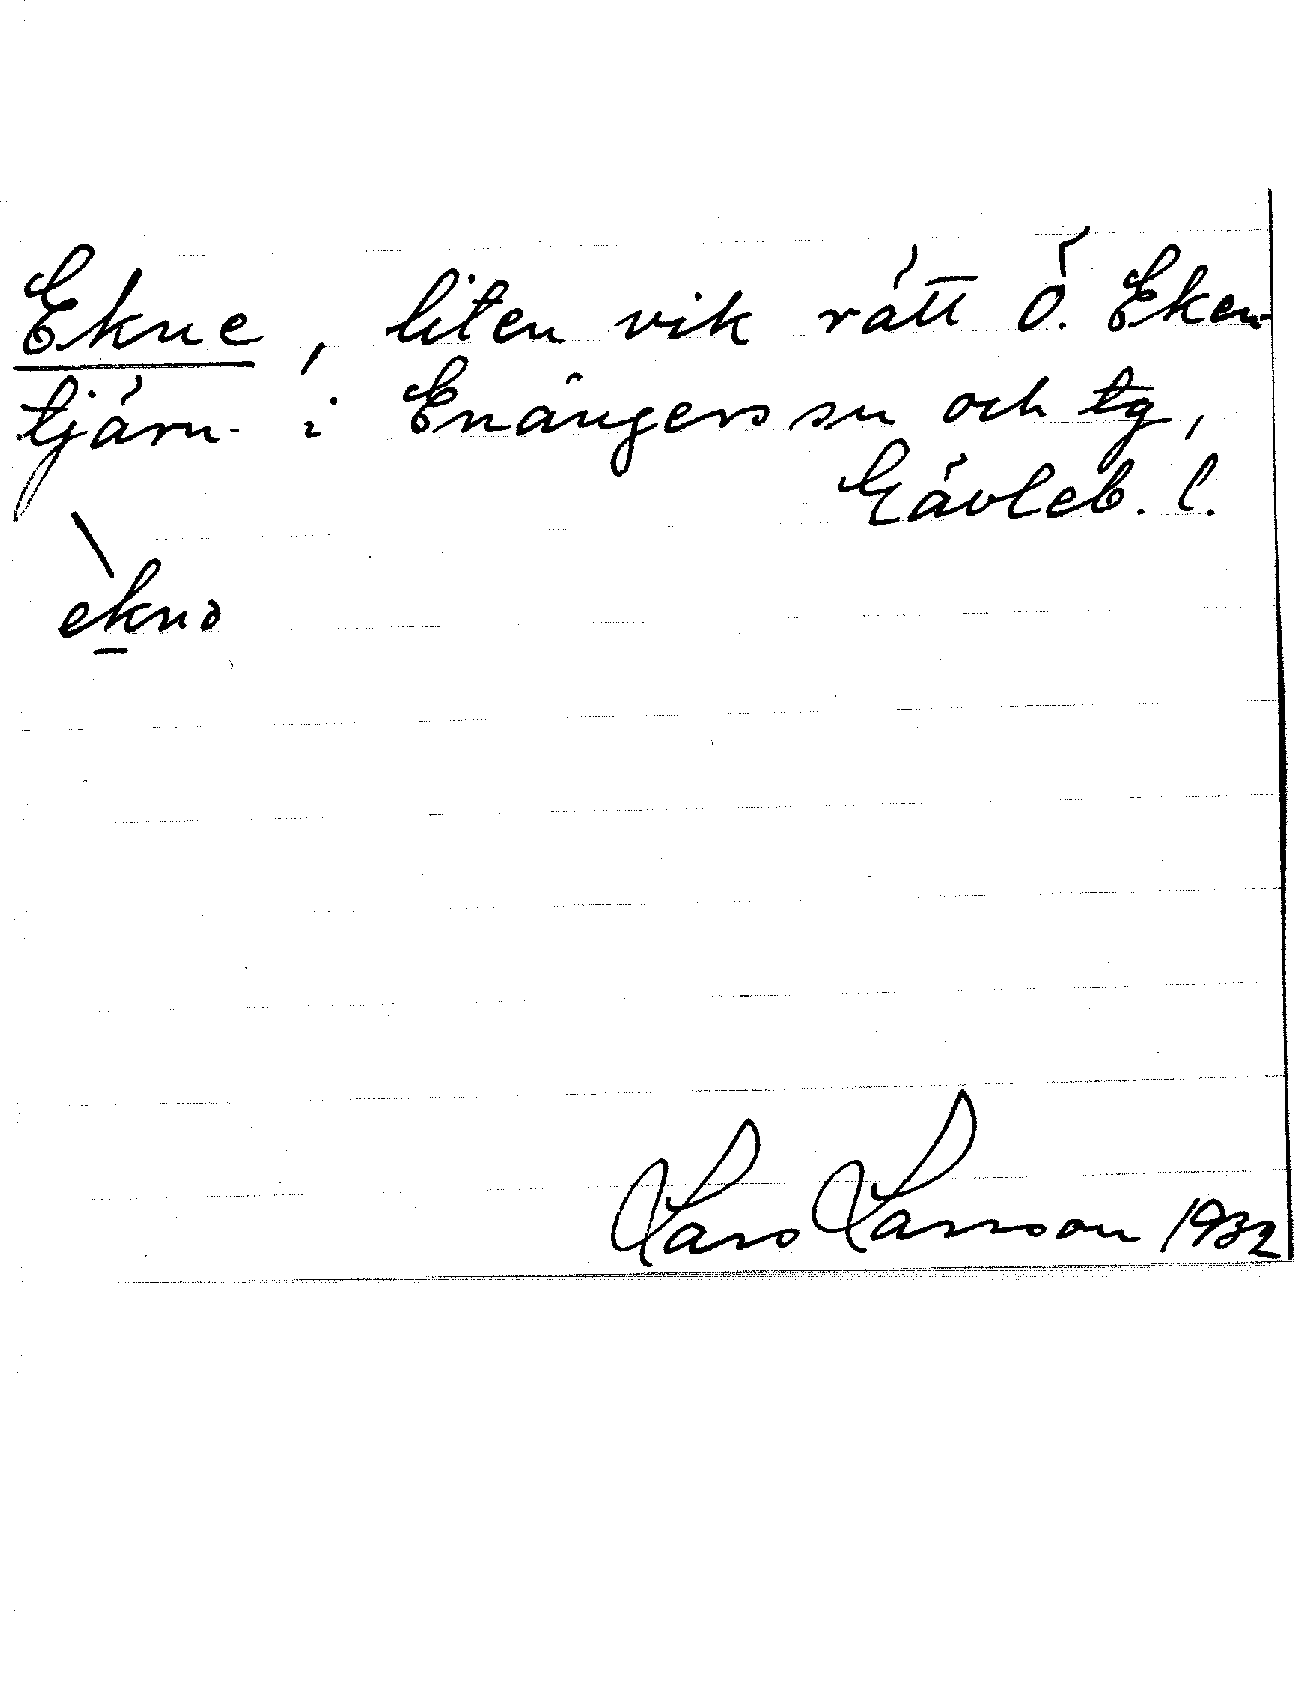 Ekne, liten vik rätt Ö. Eken-
tjärn i Enångers sn och tg,
Gävleb. l.
eknə
Lars Larsson 1932